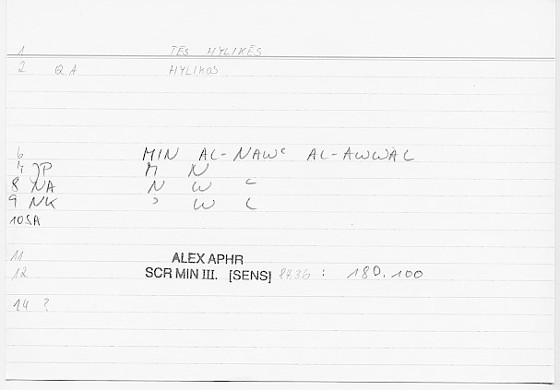 1 TĒS HYLIKĒS
2 QA HYLIKOS
6 MIN AL-NAWʿ AL-AWWAL
7 JP M N
8 NA N W ʿ
9 NK ʾ W L
10 SA
11 ALEX APHR
12 SCR MIN III. [SENS] : 180.100
14 ?